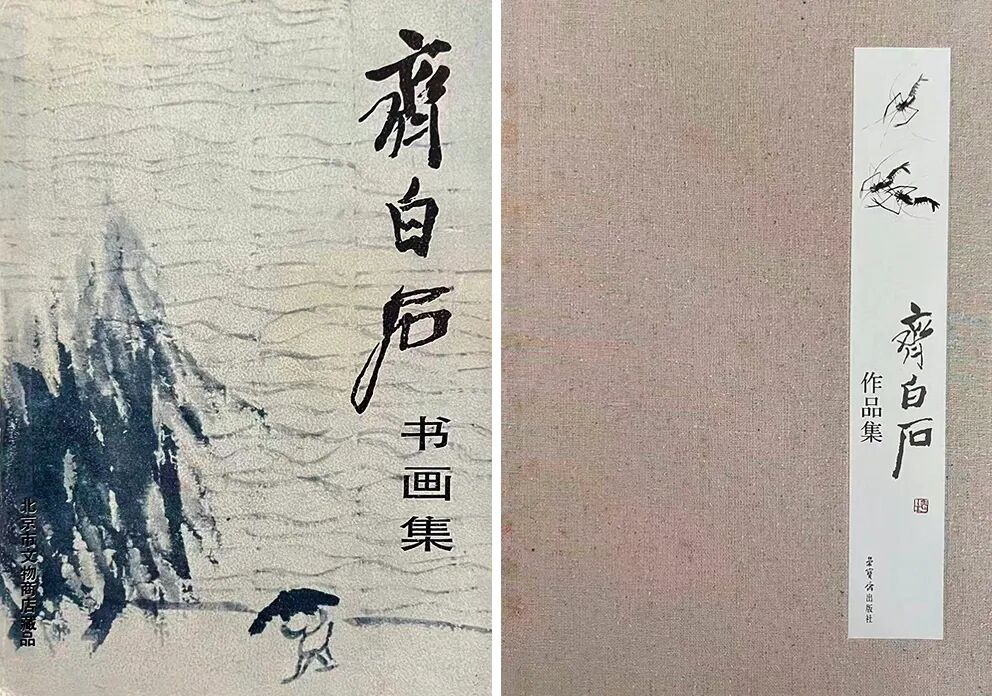 齊白石
书画集
北京市文物商店藏品
齊白石
作品集
荣宝斋出版社